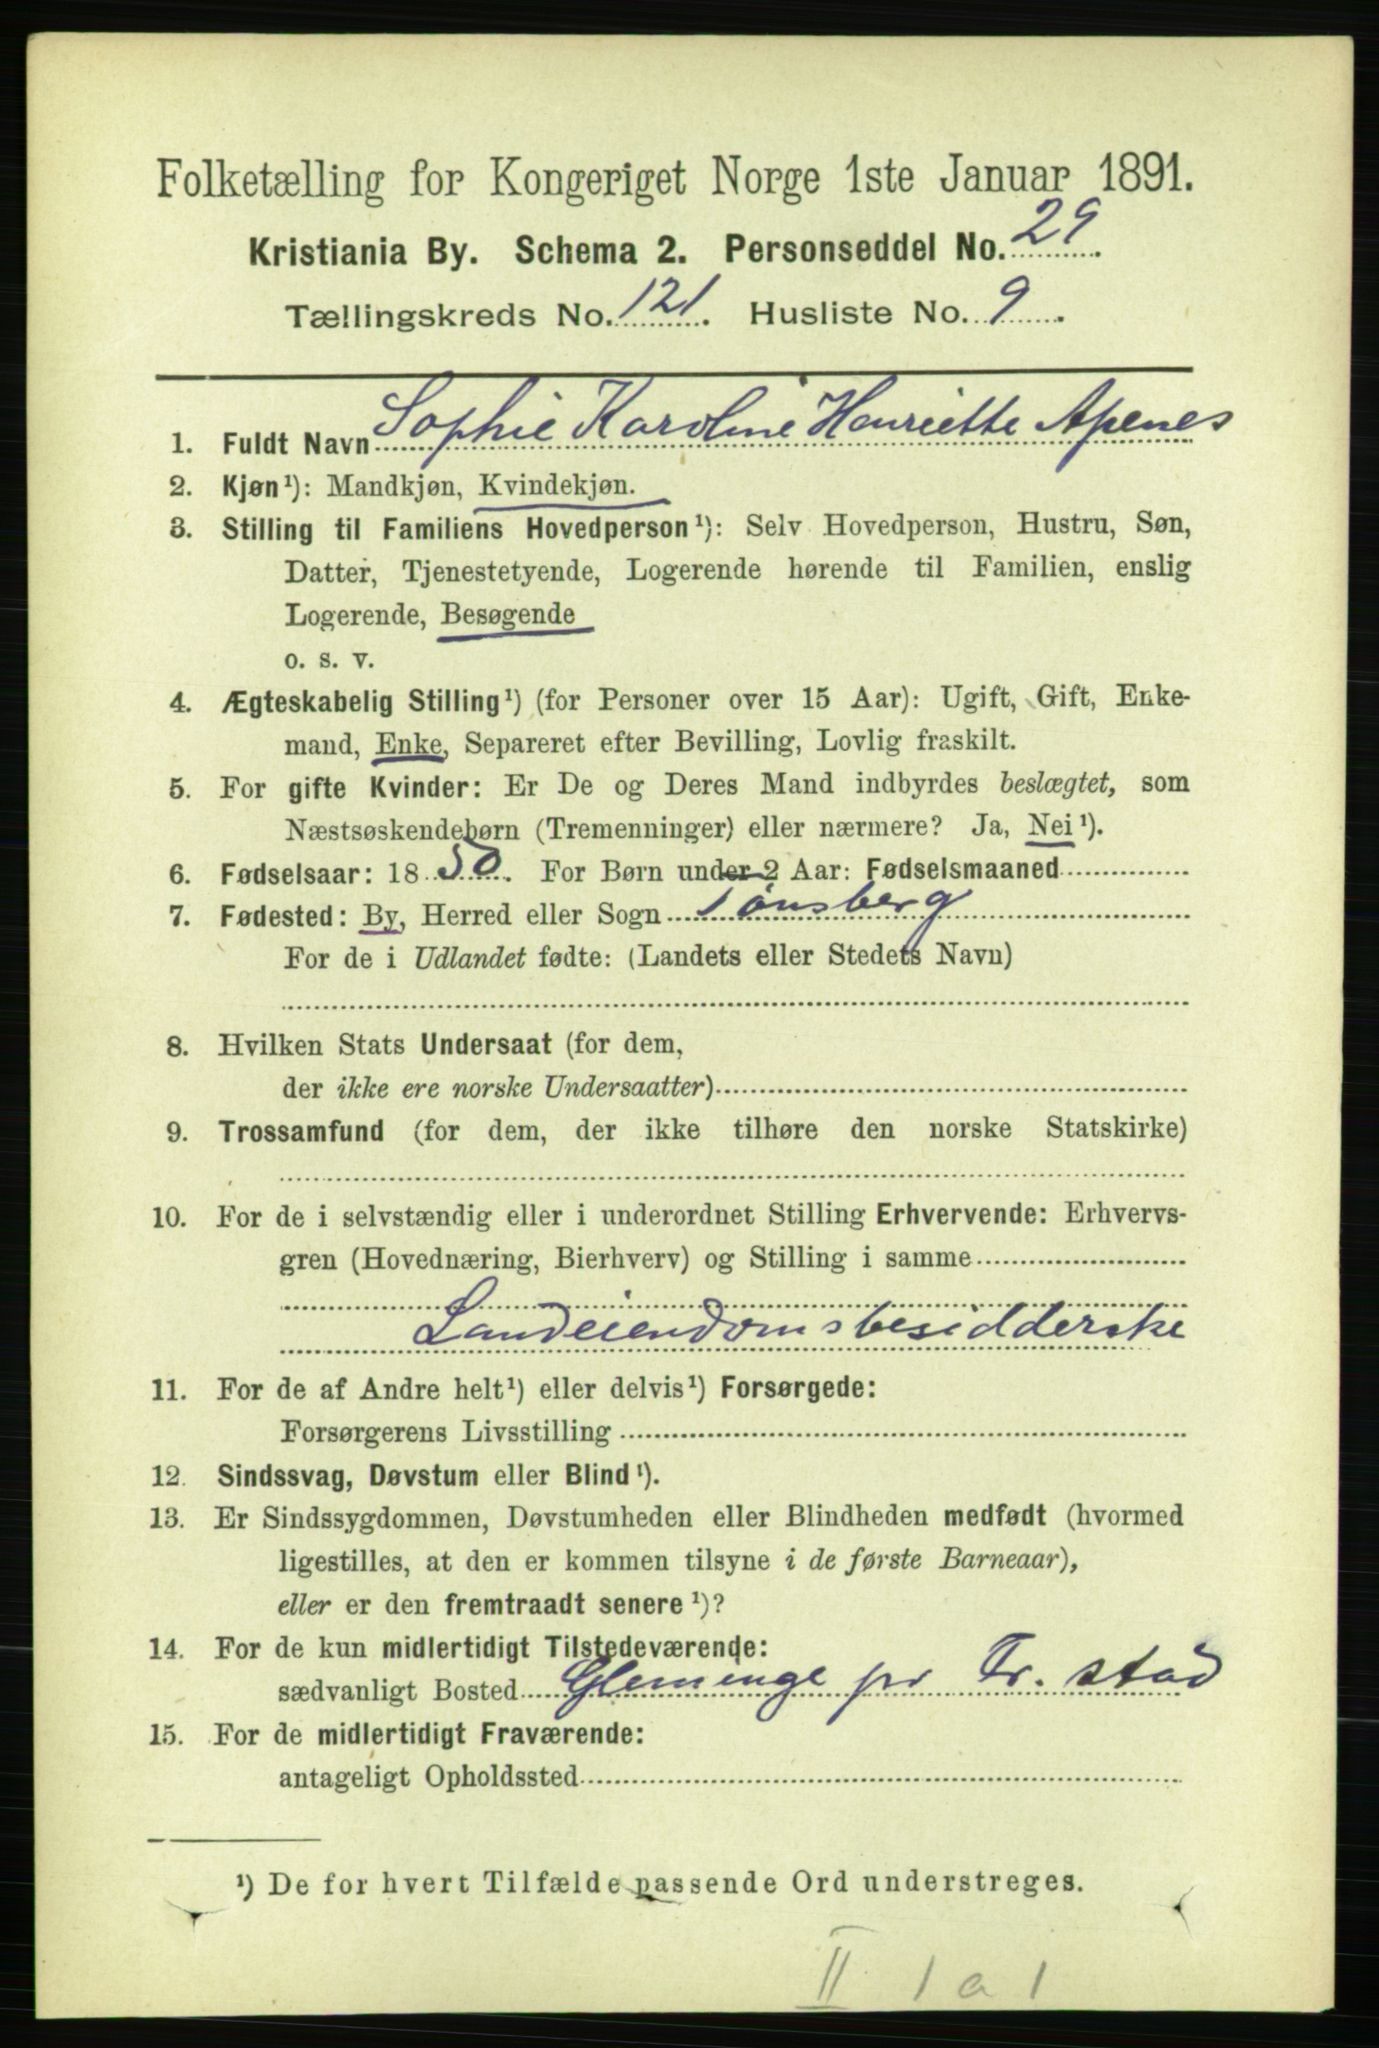 Folketælling for Kongeriget Norge 1ste Januar 1891.
Kristiania By. Schema 2. Personseddel No. 29.
Tællingskreds No. 121. Husliste No. 9.
1. Fuldt Navn Sophie Karoline Henriette Apenes
2. Kjøn¹): Mandkjøn, Kvindekjøn.
3. Stilling til Familiens Hovedperson¹): Selv Hovedperson, Hustru, Søn,
Datter, Tjenestetyende, Logerende hørende til Familien, enslig
Logerende, Besøgende
o. s. v.
4. Ægteskabelig Stilling¹) (for Personer over 15 Aar): Ugift, Gift, Enke-
mand, Enke, Separeret efter Bevilling, Lovlig fraskilt.
5. For gifte Kvinder: Er De og Deres Mand indbyrdes beslægtet, som
Næstsøskendebørn (Tremenninger) eller nærmere? Ja, Nei¹).
6. Fødselsaar: 1850. For Børn under 2 Aar: Fødselsmaaned
7. Fødested: By, Herred eller Sogn Tønsberg
For de i Udlandet fødte: (Landets eller Stedets Navn)
8. Hvilken Stats Undersaat (for dem,
der ikke ere norske Undersaatter)
9. Trossamfund (for dem, der ikke tilhøre den norske Statskirke)
10. For de i selvstændig eller i underordnet Stilling Erhvervende: Erhvervs-
gren (Hovednæring, Bierhverv) og Stilling i samme
Landeiendomsbesidderske
11. For de af Andre helt¹) eller delvis¹) Forsørgede:
Forsørgerens Livsstilling
12. Sindssvag, Døvstum eller Blind¹).
13. Er Sindssygdommen, Døvstumheden eller Blindheden medfødt (hvormed
ligestilles, at den er kommen tilsyne i de første Barneaar),
eller er den fremtraadt senere¹)?
14. For de kun midlertidigt Tilstedeværende:
sædvanligt Bosted Gleminge pr Fr. stad
15. For de midlertidigt Fraværende:
antageligt Opholdssted
¹) De for hvert Tilfælde passende Ord understreges.
II 1 a 1